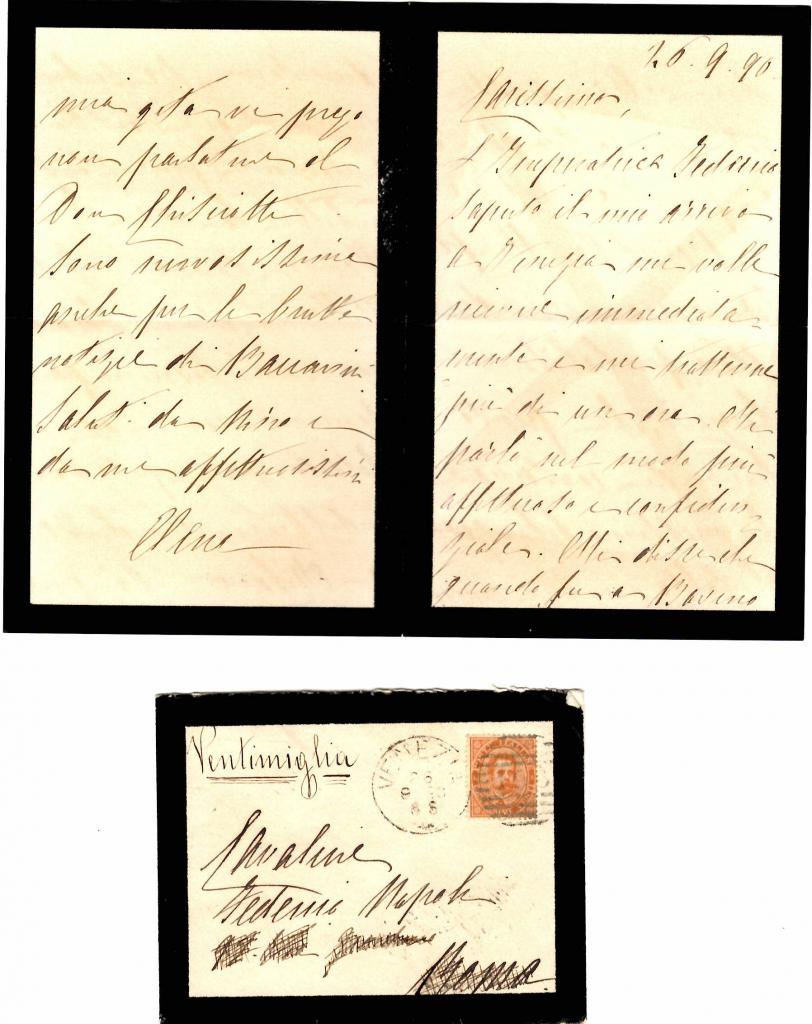 mia gita vi prego
non parlatene al
Don Chisciotte.
Sono nervosissima
anche per le brutte
notizie di Baccarini
Saluti da Nino e
da me affettuosissimi
Elena
26. 9. 90
Carissimo,
L'Imperatrice Federico
saputo il mio arrivo
a Venezia mi volle
ricevere immediata-
mente e mi trattenne
più di un ora. Mi
parlò nel modo più
affettuoso e confiden
ziale. Mi disse che
quando fu a Baveno
Ventimiglia
VENEZIA
Cavaliere
Federico Napoli
Roma